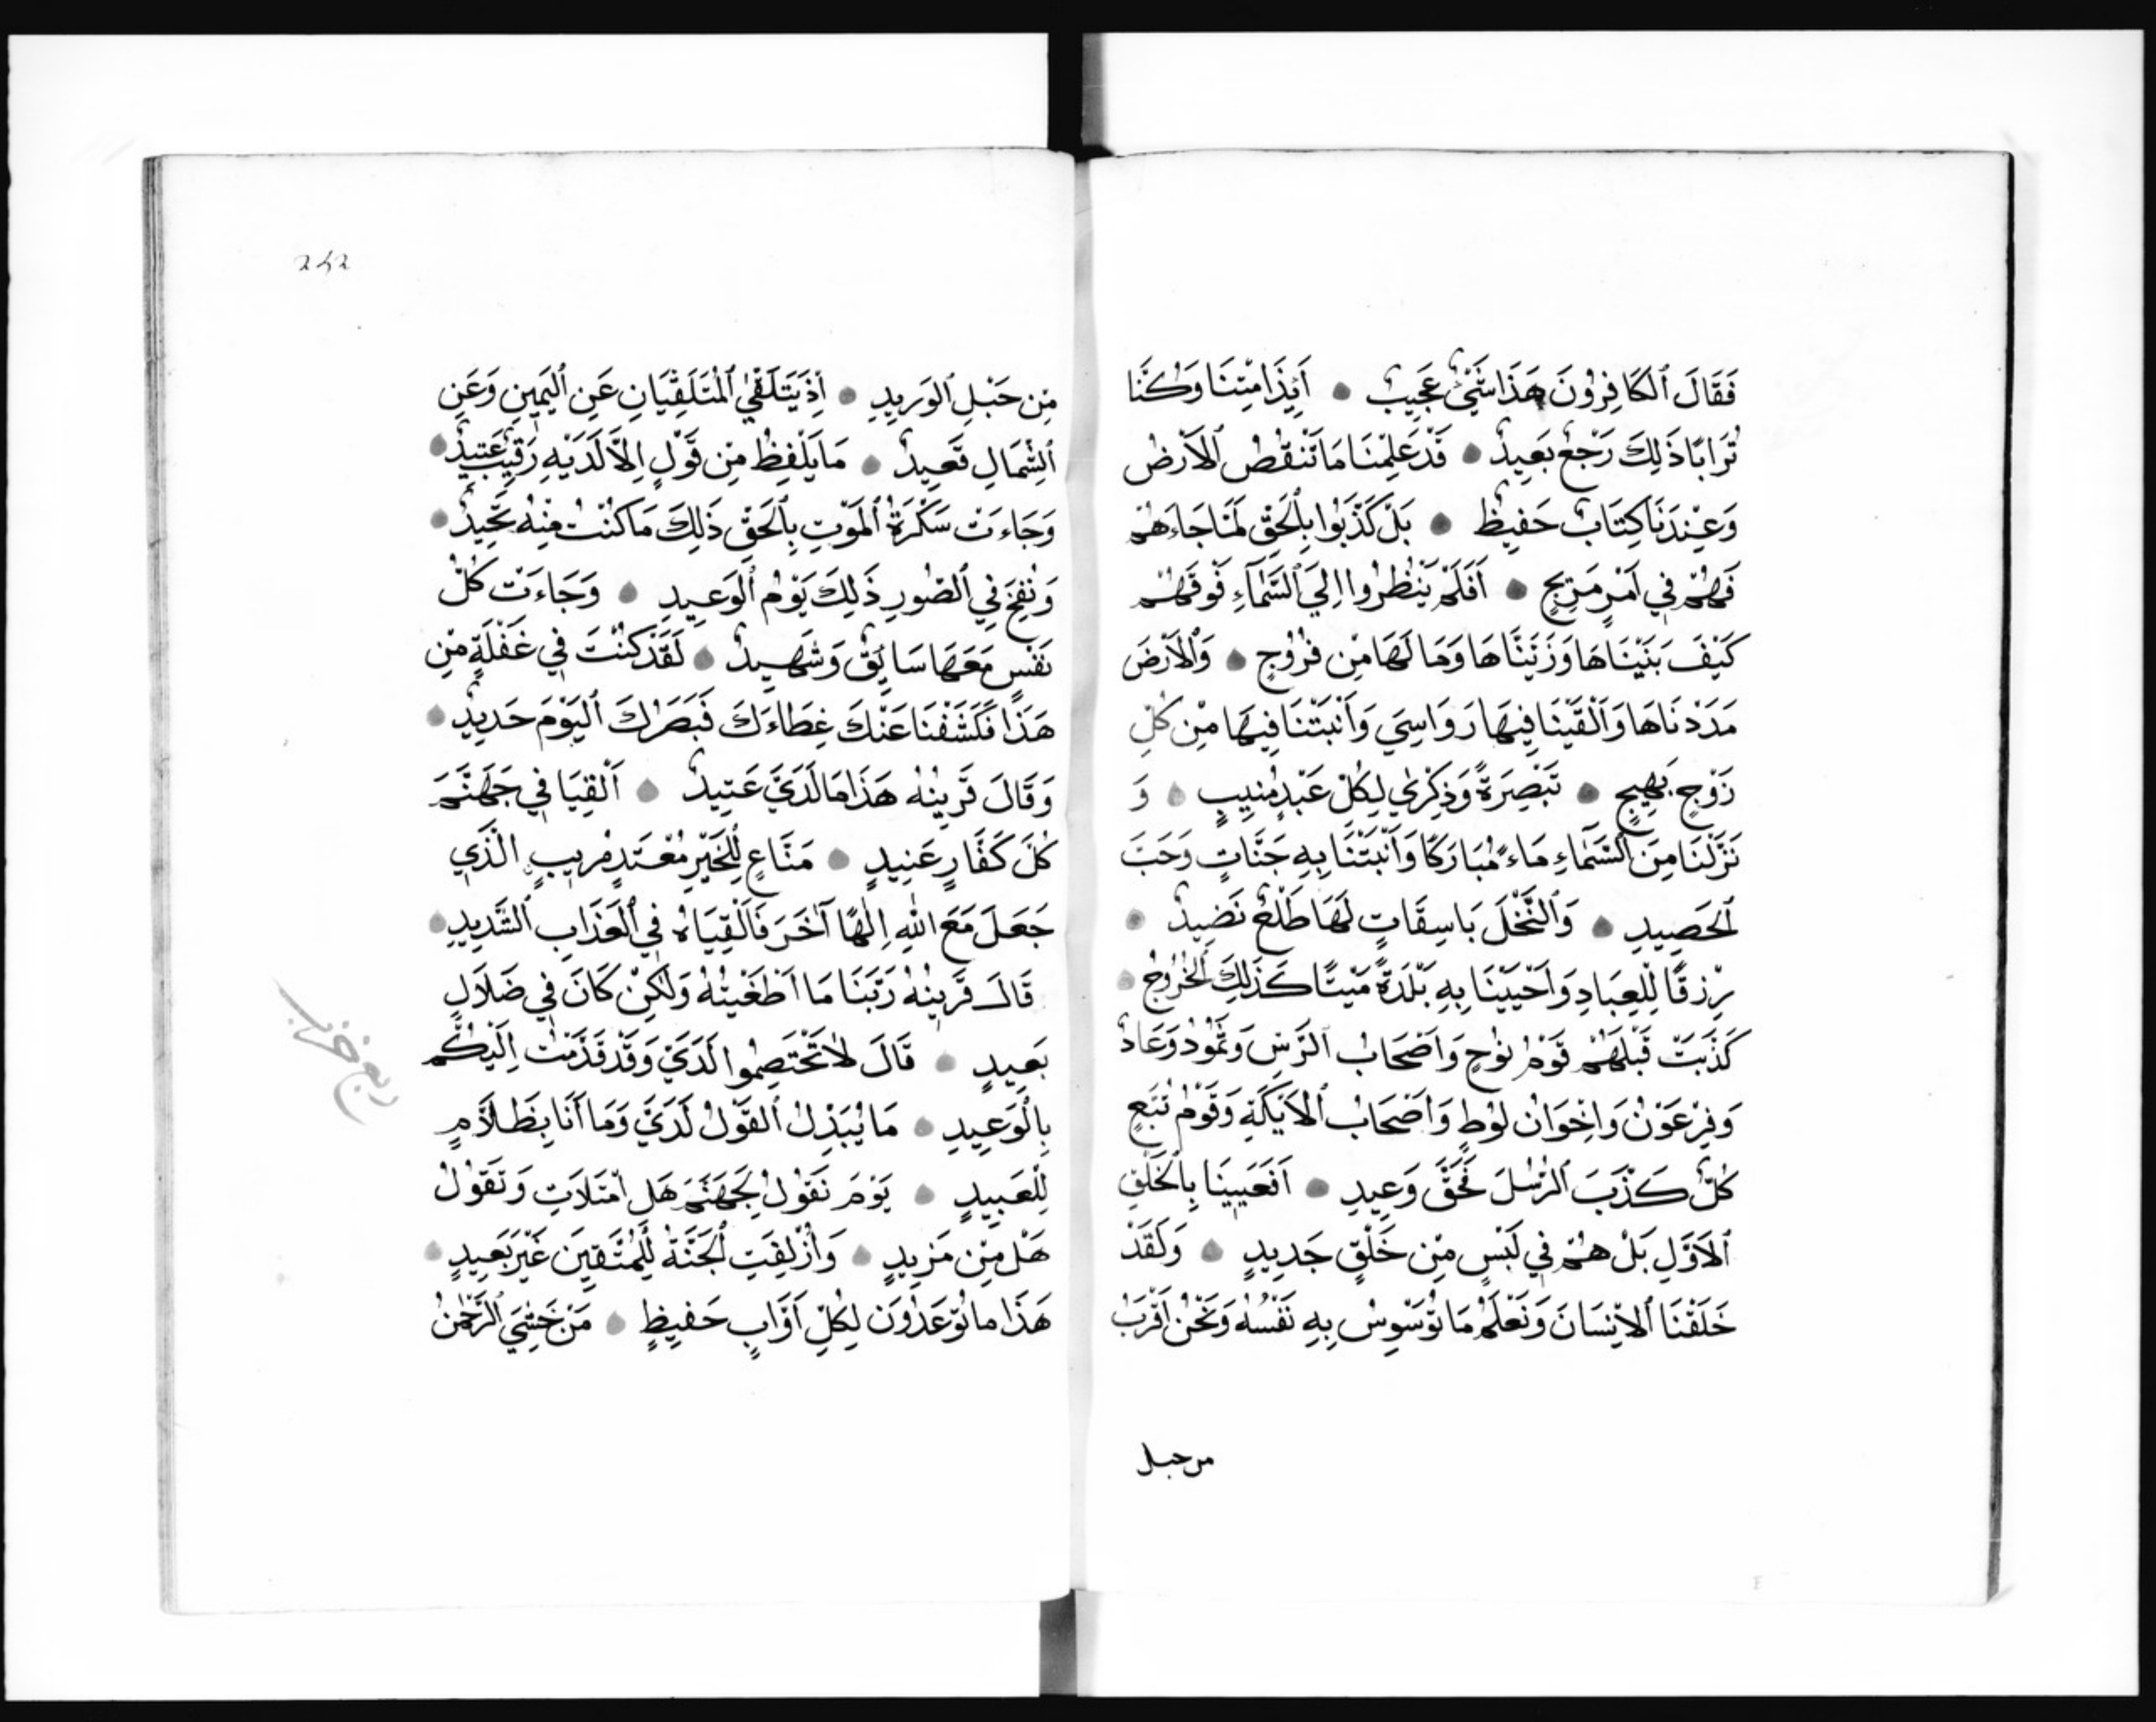 فَقَالَ ٱلْكَافِرُونَ هَذَا شَيْءٌ عَجِيبٌ ● أَئِذَا مِتْنَا وَكُنَّا
تُرَابًا ذَلِكَ رَجْعٌ بَعِيدٌ ● قَدْ عَلِمْنَا مَا تَنْقُصُ ٱلْأَرْضُ
وَعِنْدَنَا كِتَابٌ حَفِيظٌ ● بَلْ كَذَّبُوا بِٱلْحَقِّ لَمَّا جَاءَهُمْ
فَهُمْ فِي أَمْرٍ مَرِيجٍ ● أَفَلَمْ يَنْظُرُوا إِلَي ٱلسَّمَآءِ فَوْقَهُمْ
كَيْفَ بَنَيْنَاهَا وَزَيَّنَّاهَا وَمَا لَهَا مِنْ فُرُوجٍ ● وَٱلْأَرْضَ
مَدَدْنَاهَا وَأَلْقَيْنَا فِيهَا رَوَاسِيَ وَأَنْبَتْنَا فِيهَا مِنْ كُلِّ
زَوْجٍ بَهِيجٍ ● تَبْصِرَةً وَذِكْرٰي لِكُلِّ عَبْدٍ مُنِيبٍ ● وَ
نَزَّلْنَا مِنَ ٱلسَّمَاءِ مَاءً مُبَارَكًا وَأَنْبَتْنَا بِهِ جَنَّاتٍ وَحَبَّ
ٱلْحَصِيدِ ● وَٱلنَّخْلَ بَاسِقَاتٍ لَهَا طَلْعٌ نَضِيدٌ ●
رِزْقًا لِلْعِبَادِ وَأَحْيَيْنَا بِهِ بَلْدَةً مَيْتًا كَذَلِكَ ٱلْخُرُوجُ ●
كَذَّبَتْ قَبْلَهُمْ قَوْمُ نُوحٍ وَأَصْحَابُ ٱلرَّسِّ وَثَمُودُ وَعَادٌ
وَفِرْعَوْنُ وَإِخْوَانُ لُوطٍ وَأَصْحَابُ ٱلْأَيْكَةِ وَقَوْمُ تُبَّعٍ
كُلٌّ كَذَّبَ ٱلرُّسُلَ فَحَقَّ وَعِيدِ ● أَفَعَيِينَا بِٱلْخَلْقِ
ٱلْأَوَّلِ بَلْ هُمْ فِي لَبْسٍ مِنْ خَلْقٍ جَدِيدٍ ● وَلَقَدْ
خَلَقْنَا ٱلْإِنْسَانَ وَنَعْلَمُ مَا تُوَسْوِسُ بِهِ نَفْسُهُ وَنَحْنُ أَقْرَبُ
من حبل
٢٤٢
مِنْ حَبْلِ ٱلْوَرِيدِ ● إِذْ يَتَلَقَّي ٱلْمُتَلَقِّيَانِ عَنِ ٱلْيَمِينِ وَعَنِ
ٱلشِّمَالِ قَعِيدٌ ● مَا يَلْفِظُ مِنْ قَوْلٍ إِلَّا لَدَيْهِ رَقِيبٌ عَتِيدٌ ●
وَجَاءَتْ سَكْرَةُ ٱلْمَوْتِ بِٱلْحَقِّ ذَلِكَ مَا كُنْتَ مِنْهُ تَحِيدُ ●
وَنُفِخَ فِي ٱلصُّورِ ذَلِكَ يَوْمُ ٱلْوَعِيدِ ● وَجَاءَتْ كُلُّ
نَفْسٍ مَعَهَا سَائِقٌ وَشَهِيدٌ ● لَقَدْ كُنْتَ فِي غَفْلَةٍ مِنْ
هَذَا فَكَشَفْنَا عَنْكَ غِطَاءَكَ فَبَصَرُكَ ٱلْيَوْمَ حَدِيدٌ ●
وَقَالَ قَرِينُهُ هَذَا مَا لَدَيَّ عَتِيدٌ ● أَلْقِيَا فِي جَهَنَّمَ
كُلَّ كَفَّارٍ عَنِيدٍ ● مَنَّاعٍ لِلْخَيْرِ مُعْتَدٍ مُرِيبٍ الَّذِي
جَعَلَ مَعَ اللهِ إِلٰهًا آخَرَ فَأَلْقِيَاهُ فِي ٱلْعَذَابِ ٱلشَّدِيدِ ●
قَالَ قَرِينُهُ رَبَّنَا مَا أَطْغَيْتُهُ وَلٰكِنْ كَانَ فِي ضَلَالٍ
بَعِيدٍ ● قَالَ لَا تَخْتَصِمُوا لَدَيَّ وَقَدْ قَدَّمْتُ إِلَيْكُمْ
بِالْوَعِيدِ ● مَا يُبَدَّلُ ٱلْقَوْلُ لَدَيَّ وَمَا أَنَا بِظَلَّامٍ
لِلْعَبِيدِ ● يَوْمَ نَقُولُ لِجَهَنَّمَ هَلِ امْتَلَأْتِ وَتَقُولُ
هَلْ مِنْ مَزِيدٍ ● وَأُزْلِفَتِ ٱلْجَنَّةُ لِلْمُتَّقِينَ غَيْرَ بَعِيدٍ ●
هَذَا مَا تُوعَدُونَ لِكُلِّ أَوَّابٍ حَفِيظٍ ● مَنْ خَشِيَ ٱلرَّحْمٰنَ